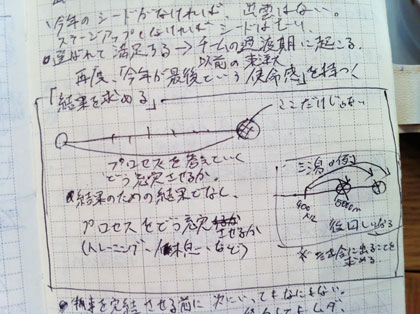 今年のシードがなければ、出雲はない。
スケールアップしなければ、シードはない。
選ばれて満足する→チームの過渡期に起こる。
以前の実法大
再度、「今年が最後という使命感」を持つ。
「結果を求める」
ここだけじゃない
プロセスを考えていく
どう充実させるか。
結果のための結果でなし、
プロセスをどう充実させるか
(トレーニング、休息、など)
三潟の例
400
800m
後回しになる
※試合に出ることを
求める。
結果を完結させる前に次にいってもなにもない。